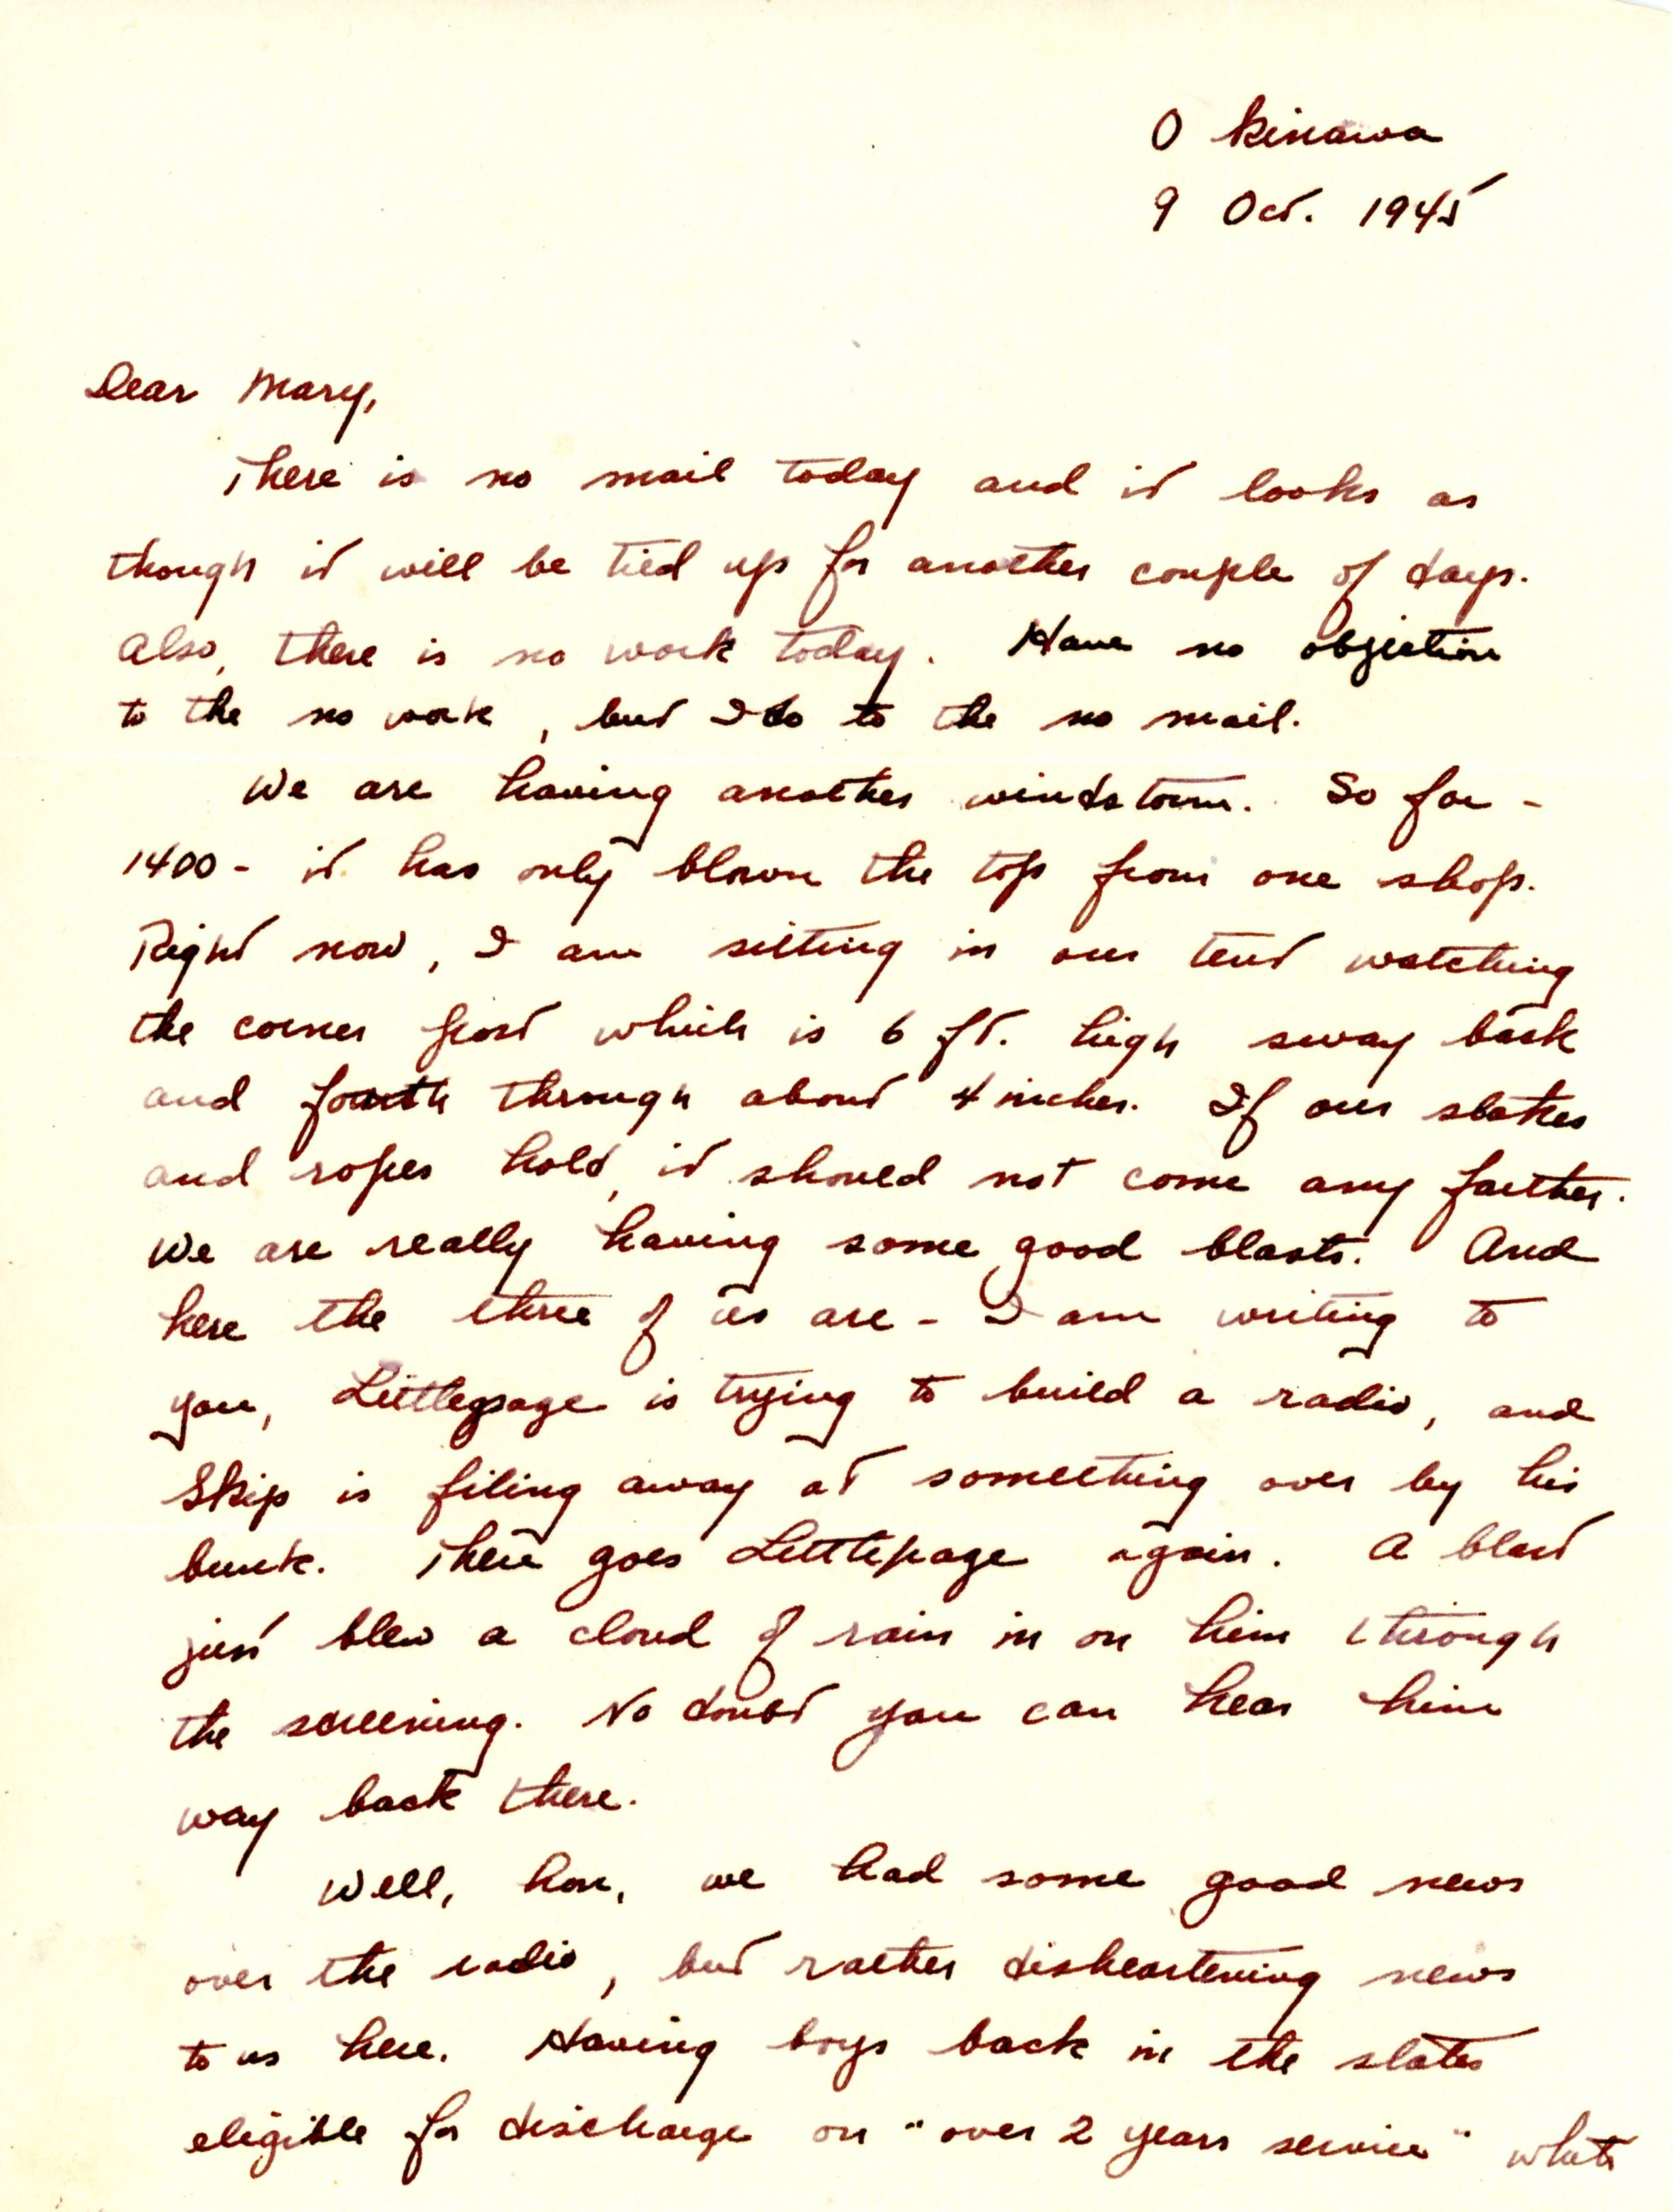 Okinawa
9 Oct. 1945
Dear Mary,
There is no mail today and it looks as
though it will be tied up for another couple of days.
Also, there is no work today. Have no objection
to the no work, but I do to the no mail.
We are having another windstorm. So far -
1400 - it has only blown the top from one shop.
Right now, I am sitting in our tent watching
the corner post which is 6 ft. high sway back
and fourth through about 4 inches. If our stakes
and ropes hold, it should not come any farther.
We are really having some good blasts. And
here the three of us are - I am writing to
you, Littlepage is trying to build a radio, and
Skip is filing away at something over by his
bunk. There goes Littlepage again. A blast
just blew a cloud of rain in on him through
the screening. No doubt you can hear him
way back there.
Well, hon, we had some good news
over the radio, but rather disheartening news
to us here. Having boys back in the states
eligible for discharge on "over 2 years service"